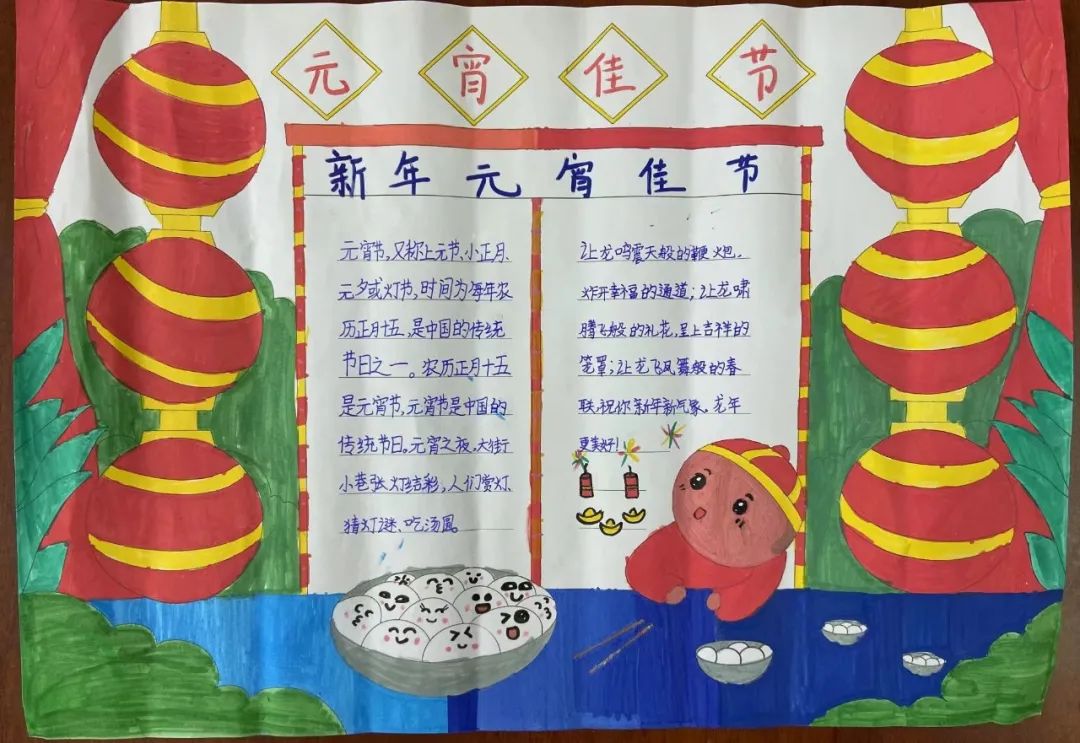 元宵佳节
新年元宵佳节
元宵节,又称上元节、小正月、
元夕或灯节,时间为每年农
历正月十五,是中国的传统
节日之一。农历正月十五
是元宵节,元宵节是中国的
传统节日。元宵之夜,大街
小巷张灯结彩,人们赏灯、
猜灯谜、吃汤圆。
让龙鸣震天般的鞭炮,
炸开幸福的通道;让龙啸
腾飞般的礼花,呈上吉祥的
笼罩;让龙飞凤舞般的春
联,祝你新年新气象。龙年
更美好!